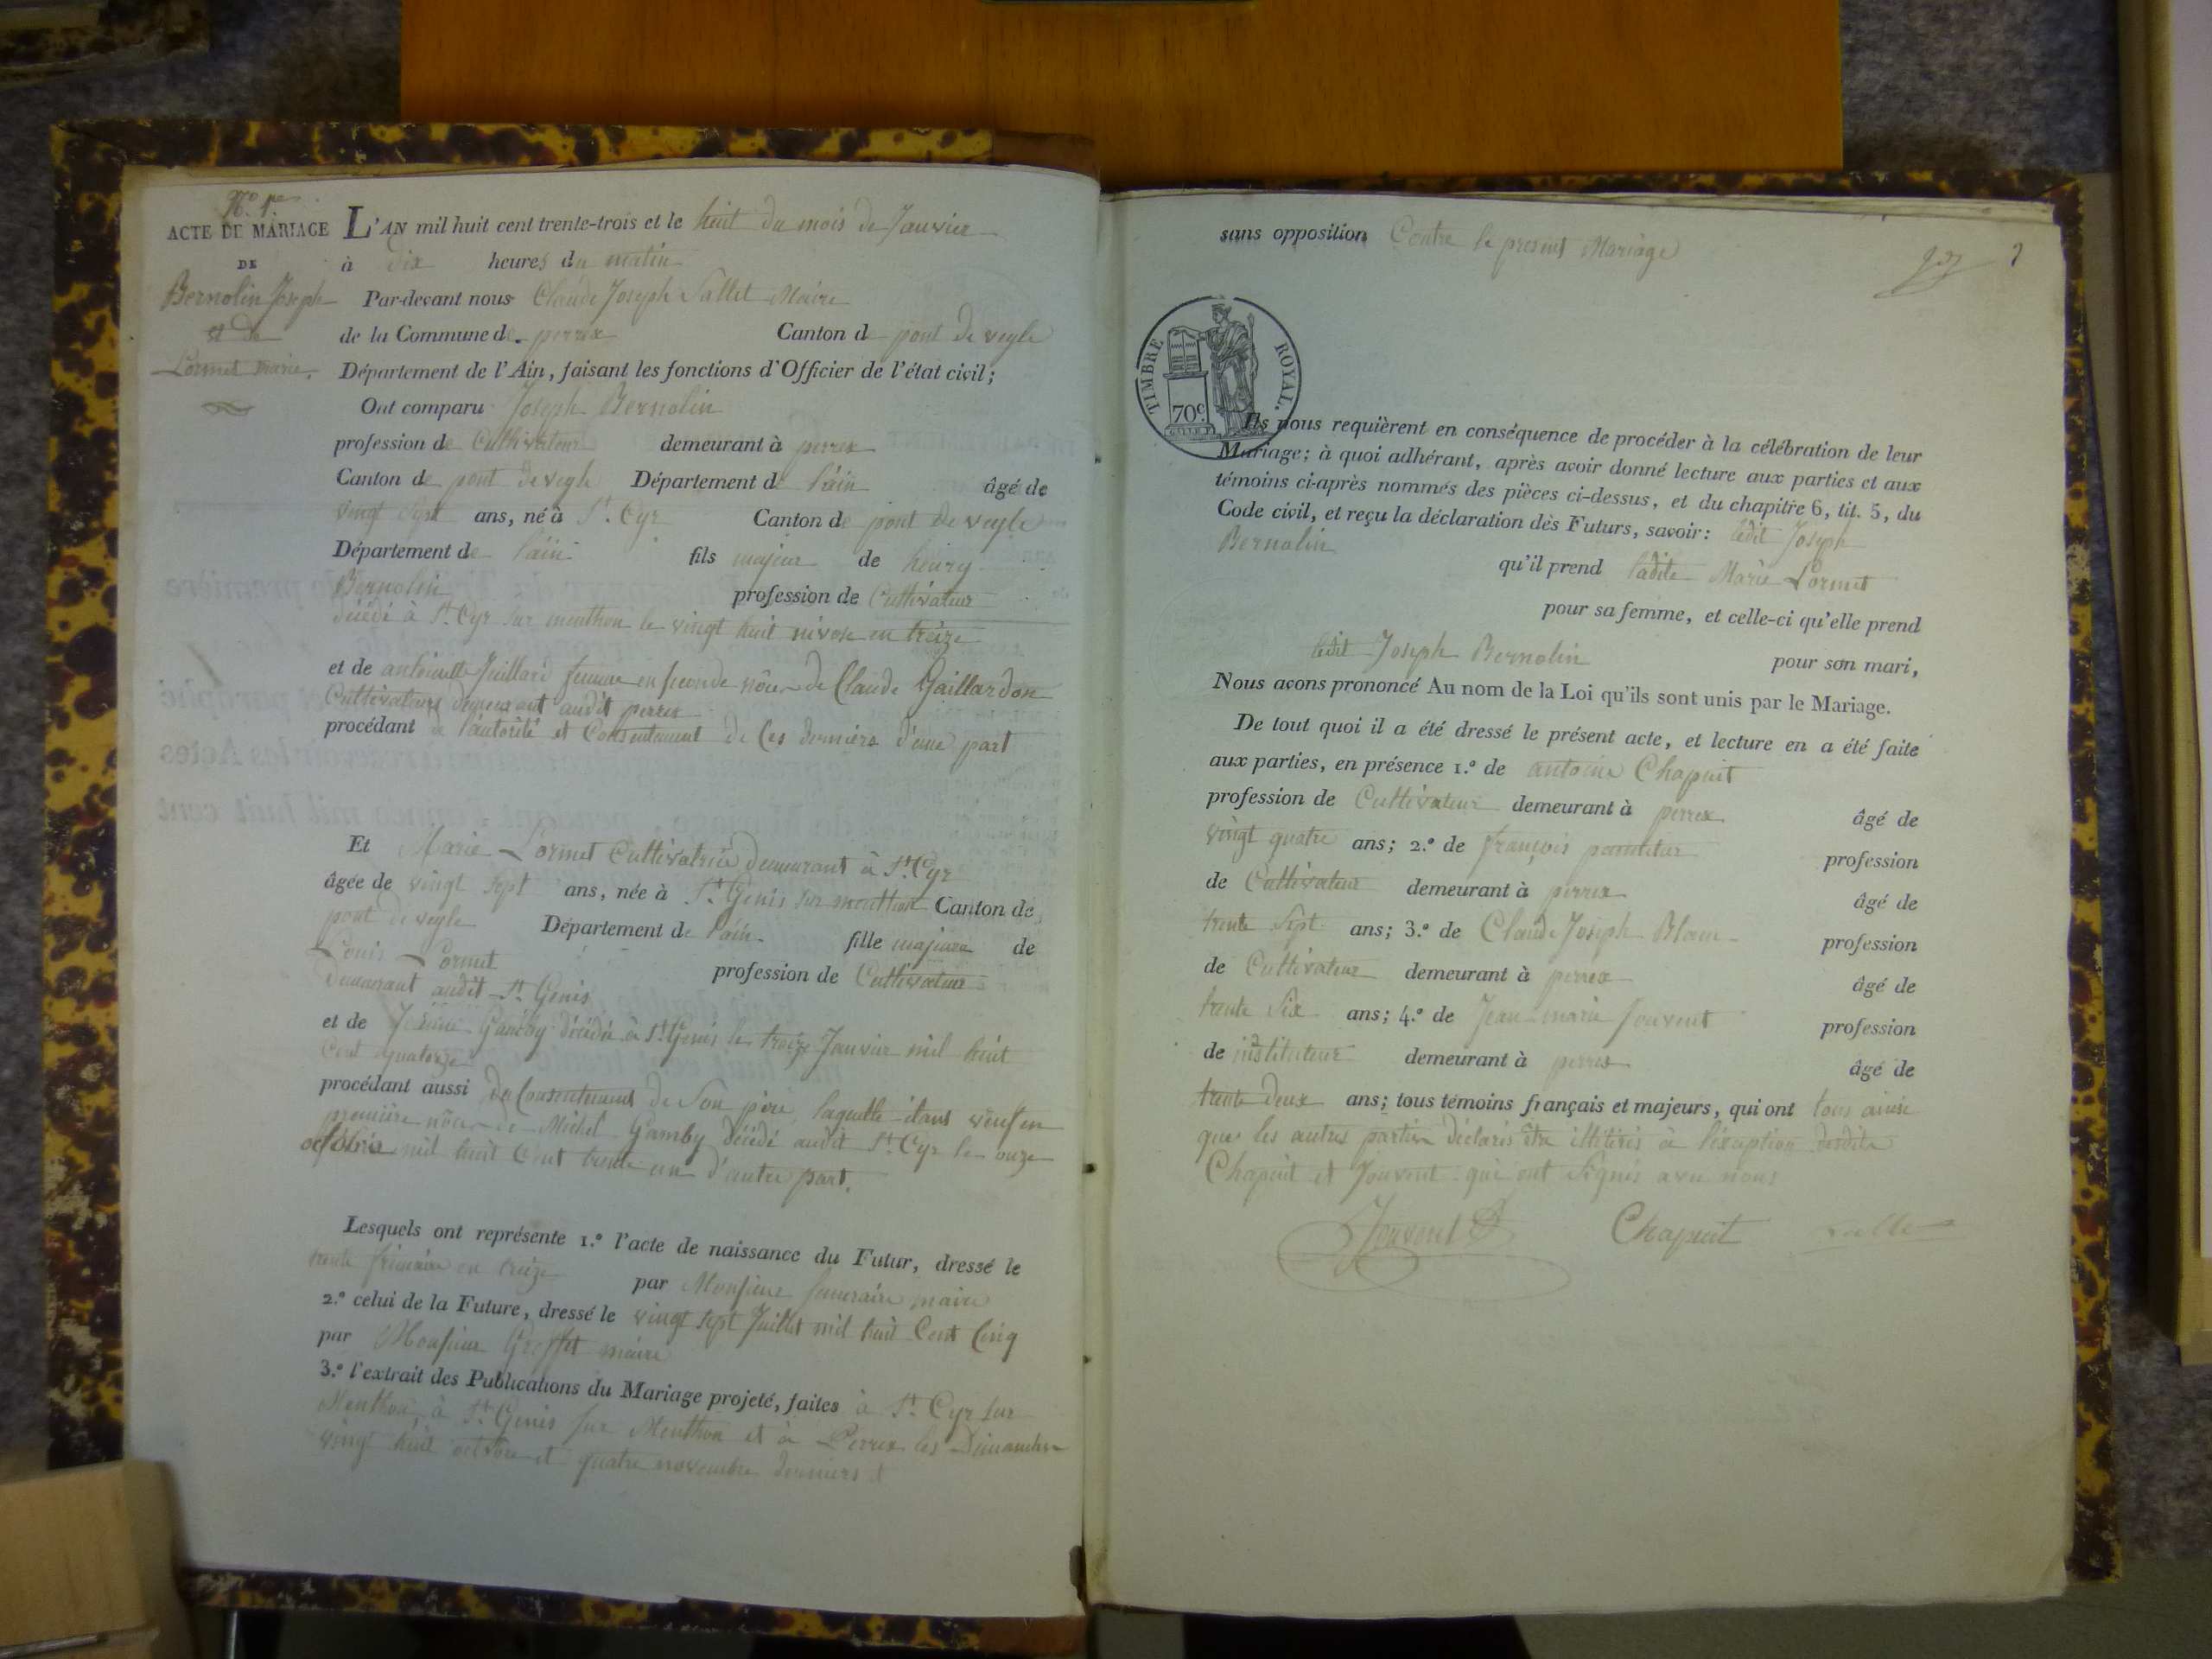 N.o 1.er
ACTE DE MARIAGE
DE
Bernolin Joseph
et de
Lormet marie.
L'AN mil huit cent trente-trois et le huit du mois de Janvier
à dix heures du matin
Par-devant nous Claude Joseph Sallet Maire
de la Commune de perrex Canton de pont de veyle
Département de l'Ain, faisant les fonctions d'Officier de l'état civil;
Ont comparu Joseph Bernolin
profession de Cultivateur demeurant à perrex
Canton de pont de veyle Département de l'ain âgé de
vingt sept ans, né à St. Cyr Canton de pont de veyle
Département de l'ain fils majeur de henry
Bernolin profession de Cultivateur
décédé à St. Cyr sur menthon le vingt huit nivose en treize
et de antoinette Juillard femme en seconde nôces de Claude Gaillardon
Cultivateurs demeurant audit perrex
procédant de l'autorité et Consentement de Ces derniers d'une part
Et Marie Lormet Cultivatrice demeurant à St. Cyr
âgée de vingt sept ans, née à St. Genis sur menthon Canton de
pont de veyle Département de l'ain fille majeure de
Louis Lormet profession de Cultivateur
demeurant audit St. Genis
et de Gamby décédée à St. Genis le treize Janvier mil huit
Cent quatorze
procédant aussi du Consentement de Son père laquelle étant veuf en
première nôces de Michel Gamby décédé audit St. Cyr le onze
octobre mil huit Cent trente un d'autre part.
Lesquels ont représenté 1.º l'acte de naissance du Futur, dressé le
trente frimaire en treize par Monsieur maire
2.º celui de la Future, dressé le vingt sept Juillet mil huit Cent Cinq
par Monsieur Greffet maire
3.º l'extrait des Publications du Mariage projeté, faites à St. Cyr sur
Menthon, à St. Genis sur Menthon et à Perrex les Dimanches
vingt huit octobre et quatre novembre derniers et
sans opposition Contre le présent Mariage
2
TIMBRE ROYAL.
70c
Ils nous requièrent en conséquence de procéder à la célébration de leur
Mariage; à quoi adhérant, après avoir donné lecture aux parties et aux
témoins ci-après nommés des pièces ci-dessus, et du chapitre 6, tit. 5, du
Code civil, et reçu la déclaration des Futurs, savoir: ledit Joseph
Bernolin
qu'il prend ladite Marie Lormet
pour sa femme, et celle-ci qu'elle prend
ledit Joseph Bernolin pour son mari,
Nous avons prononcé Au nom de la Loi qu'ils sont unis par le Mariage.
De tout quoi il a été dressé le présent acte, et lecture en a été faite
aux parties, en présence 1.º de antoine Chapuit
profession de Cultivateur demeurant à perrex âgé de
vingt quatre ans; 2.º de françois profession
de Cultivateur demeurant à perrex âgé de
trente sept ans; 3.º de Claude Joseph Blanc profession
de Cultivateur demeurant à perrex âgé de
trente Six ans; 4.º de Jean marie Jouvent profession
de instituteur demeurant à perrex âgé de
trente deux ans; tous témoins français et majeurs, qui ont tous ainsi
que les autres parties déclarés être illitérés à l'éxception desdits
Chapuit et Jouvent qui ont Signés avec nous
Jouvent Chapuit Sallet